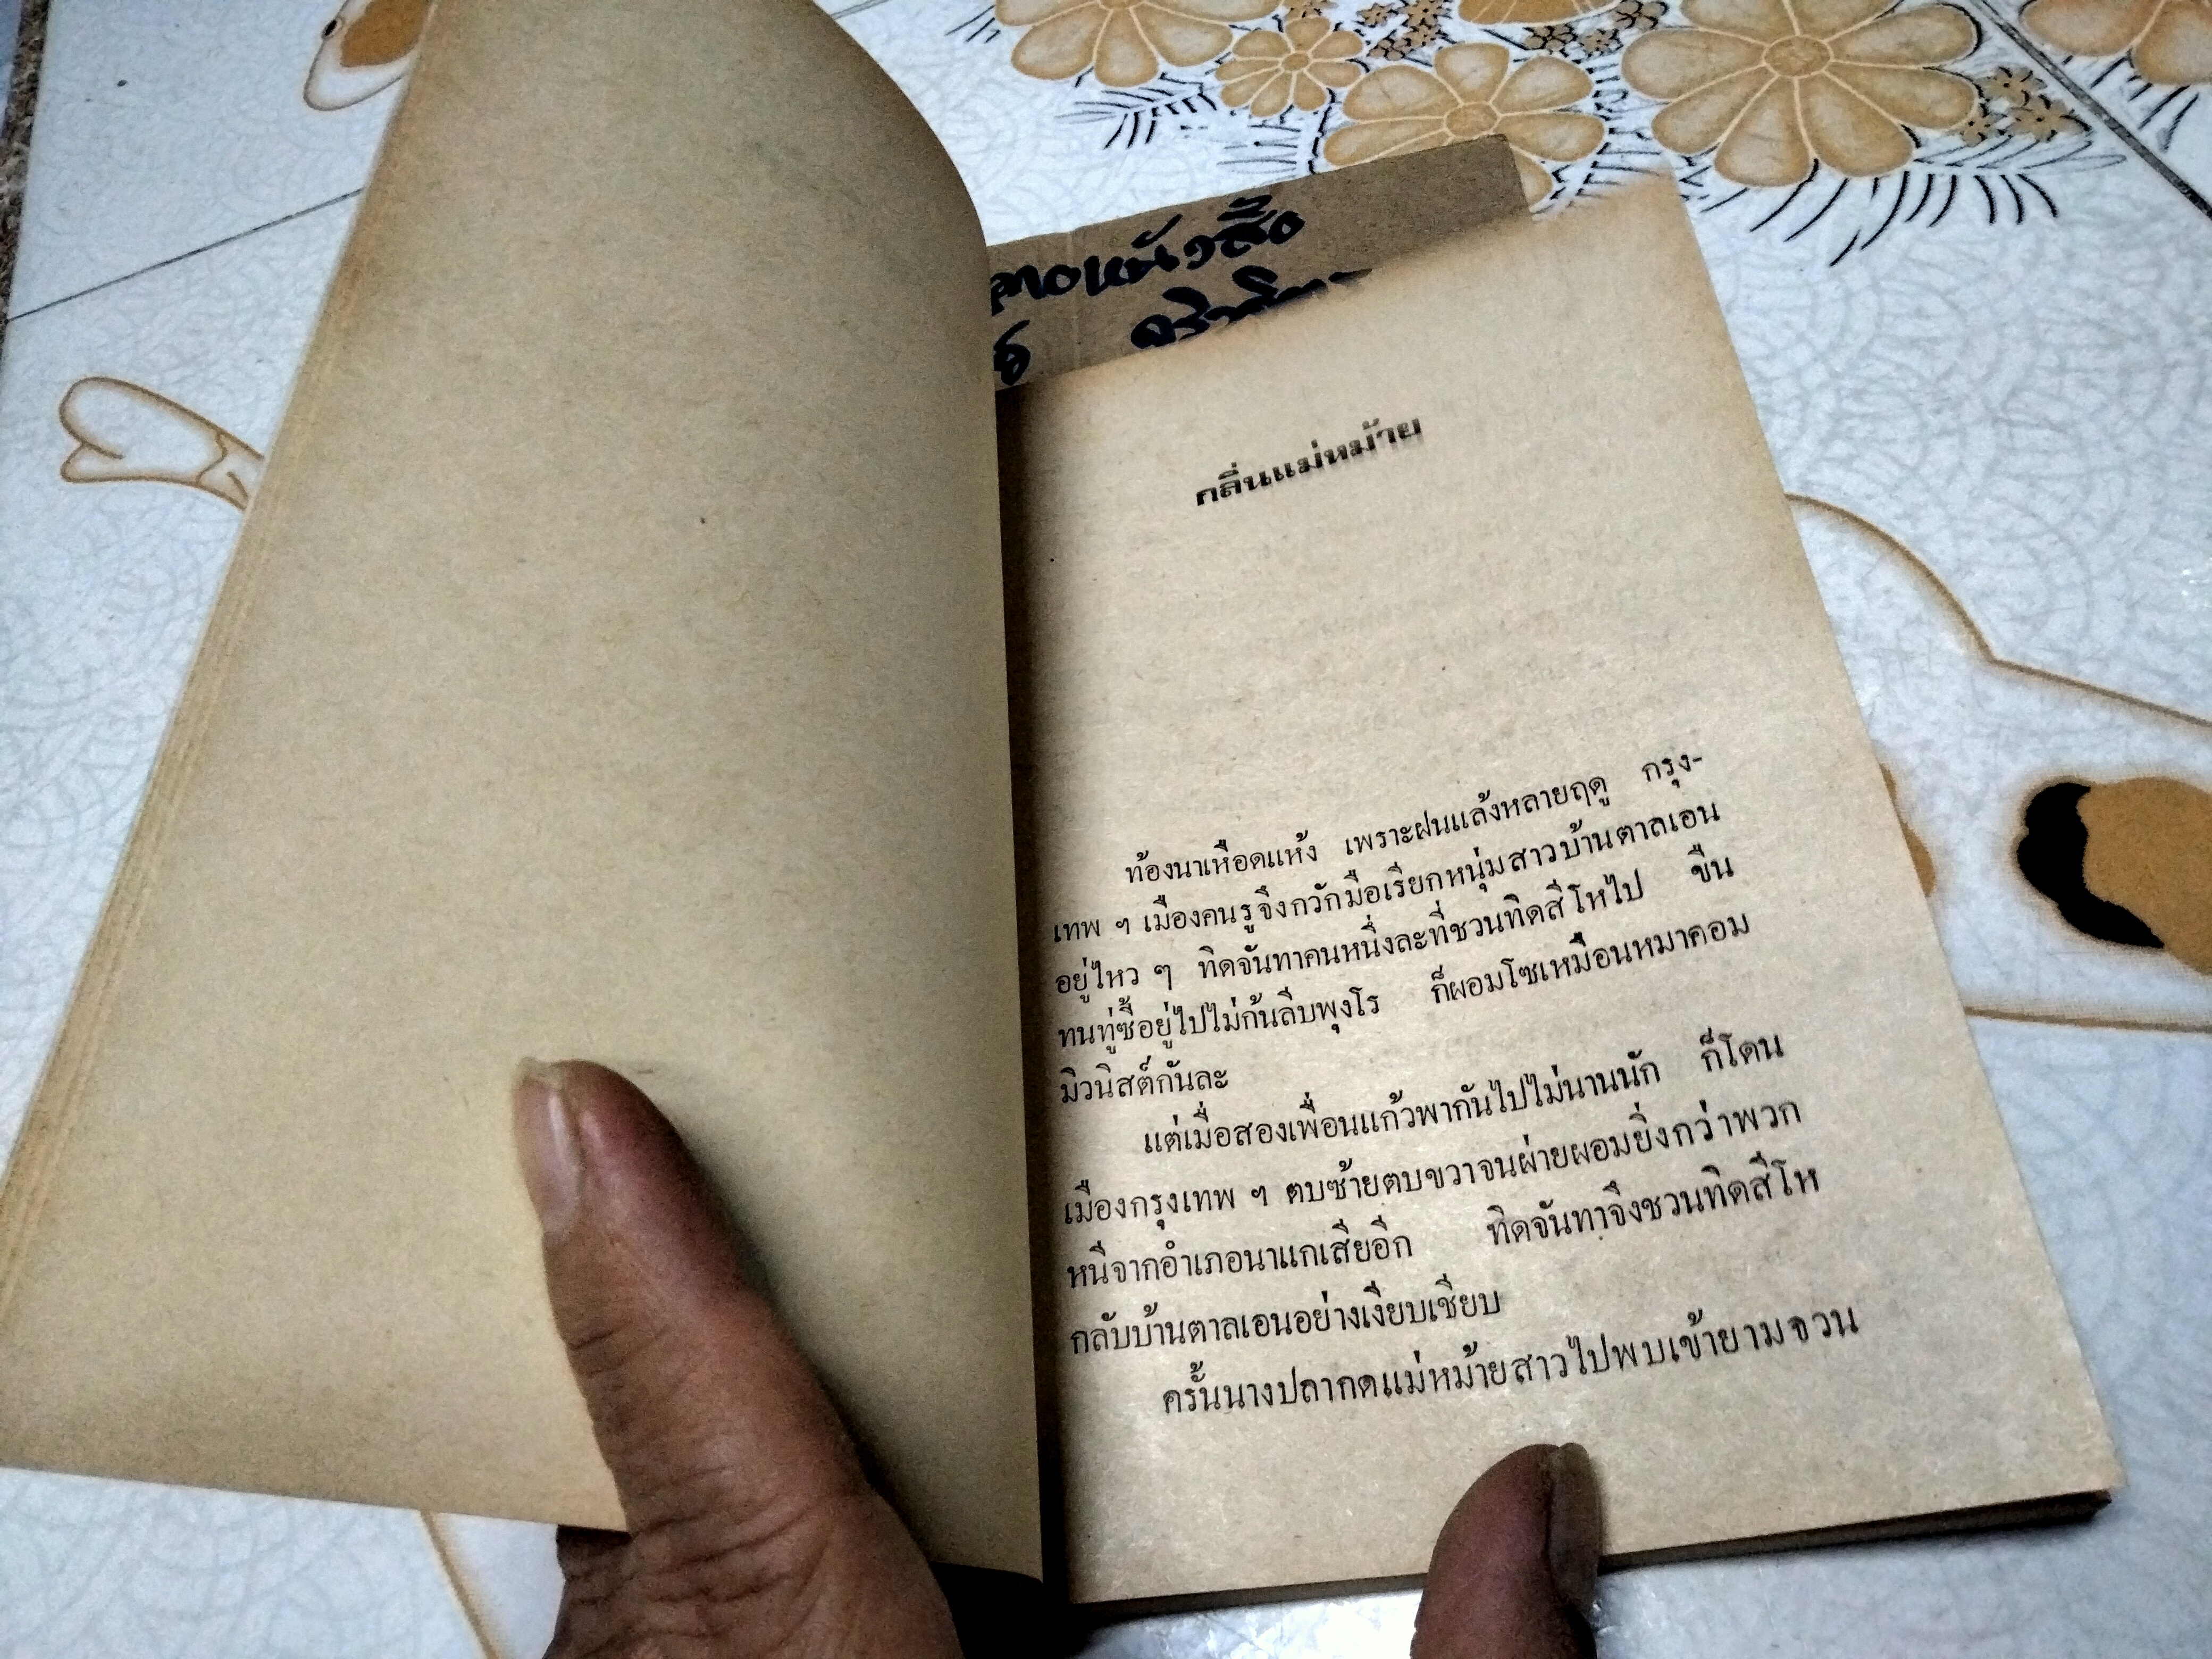 กลิ่นแม่หม้าย
ท้องนาเหือดแห้ง เพราะฝนแล้งหลายฤดู กรุง-
เทพ ฯ เมืองคนรูจึงกวักมือเรียกหนุ่มสาวบ้านตาลเอน
อยู่ไหว ๆ ทิดจันทาคนหนึ่งละที่ชวนทิดสีโหไป ขืน
ทนทู่ซี้อยู่ไปไม่ก้นลีบพุงโร ก็ผอมโซเหมือนหมาคอม
มิวนิสต์กันละ
แต่เมื่อสองเพื่อนแก้วพากันไปไม่นานนัก ก็โดน
เมืองกรุงเทพ ฯ ตบซ้ายตบขวาจนผ่ายผอมยิ่งกว่าพวก
หนีจากอำเภอนาแกเสียอีก ทิดจันทาจึงชวนทิดสีโห
กลับบ้านตาลเอนอย่างเงียบเชียบ
ครั้นนางปลากดแม่หม้ายสาวไปพบเข้ายามจวน